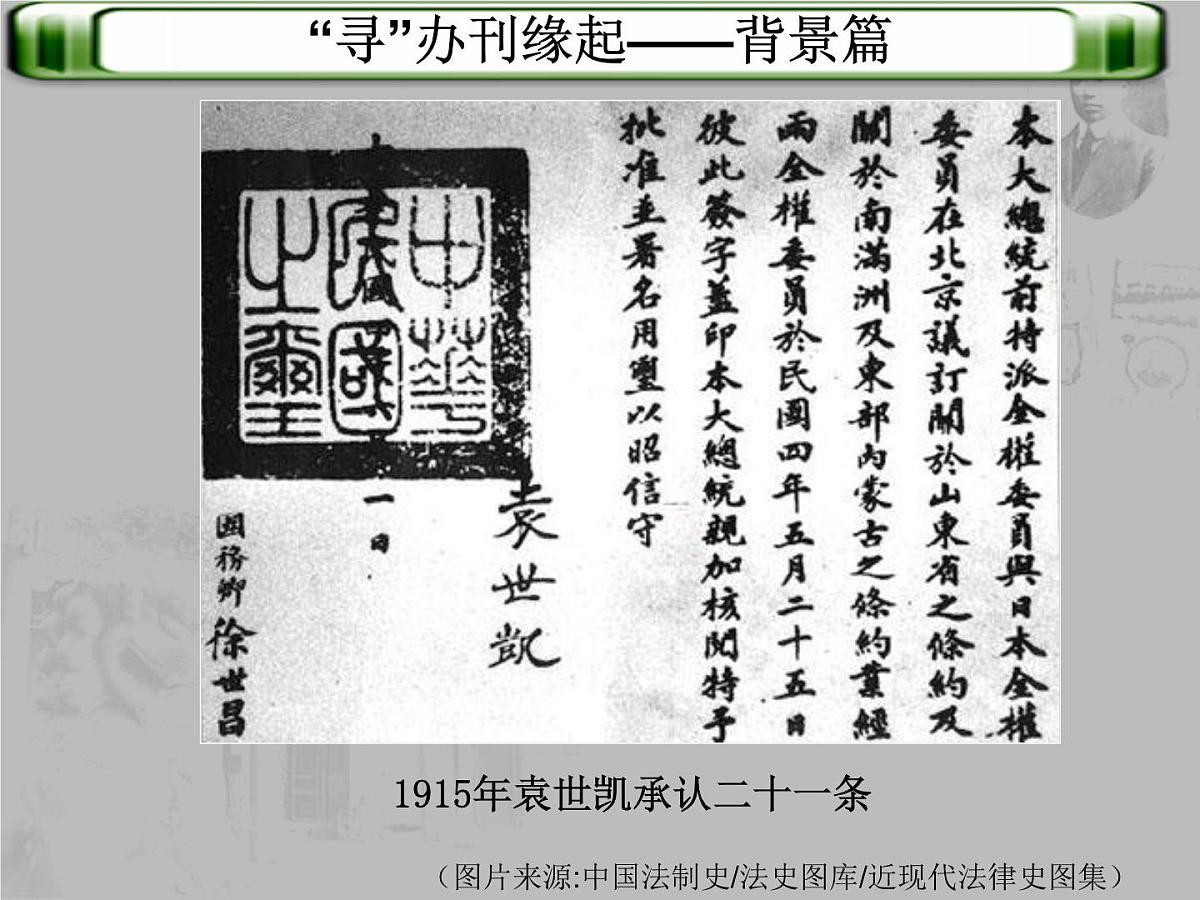 “寻”办刊缘起——背景篇
本大總統前特派全權委員與日本全權
委員在北京議訂關於山東省之條約及
關於南滿洲及東部內蒙古之條約業經
兩全權委員於民國四年五月二十五日
彼此簽字蓋印本大總統親加核閱特予
批准並署名用璽以昭信守
袁世凱
中華
民國
之璽
一日
國務卿徐世昌
1915年袁世凯承认二十一条
（图片来源:中国法制史/法史图库/近现代法律史图集）